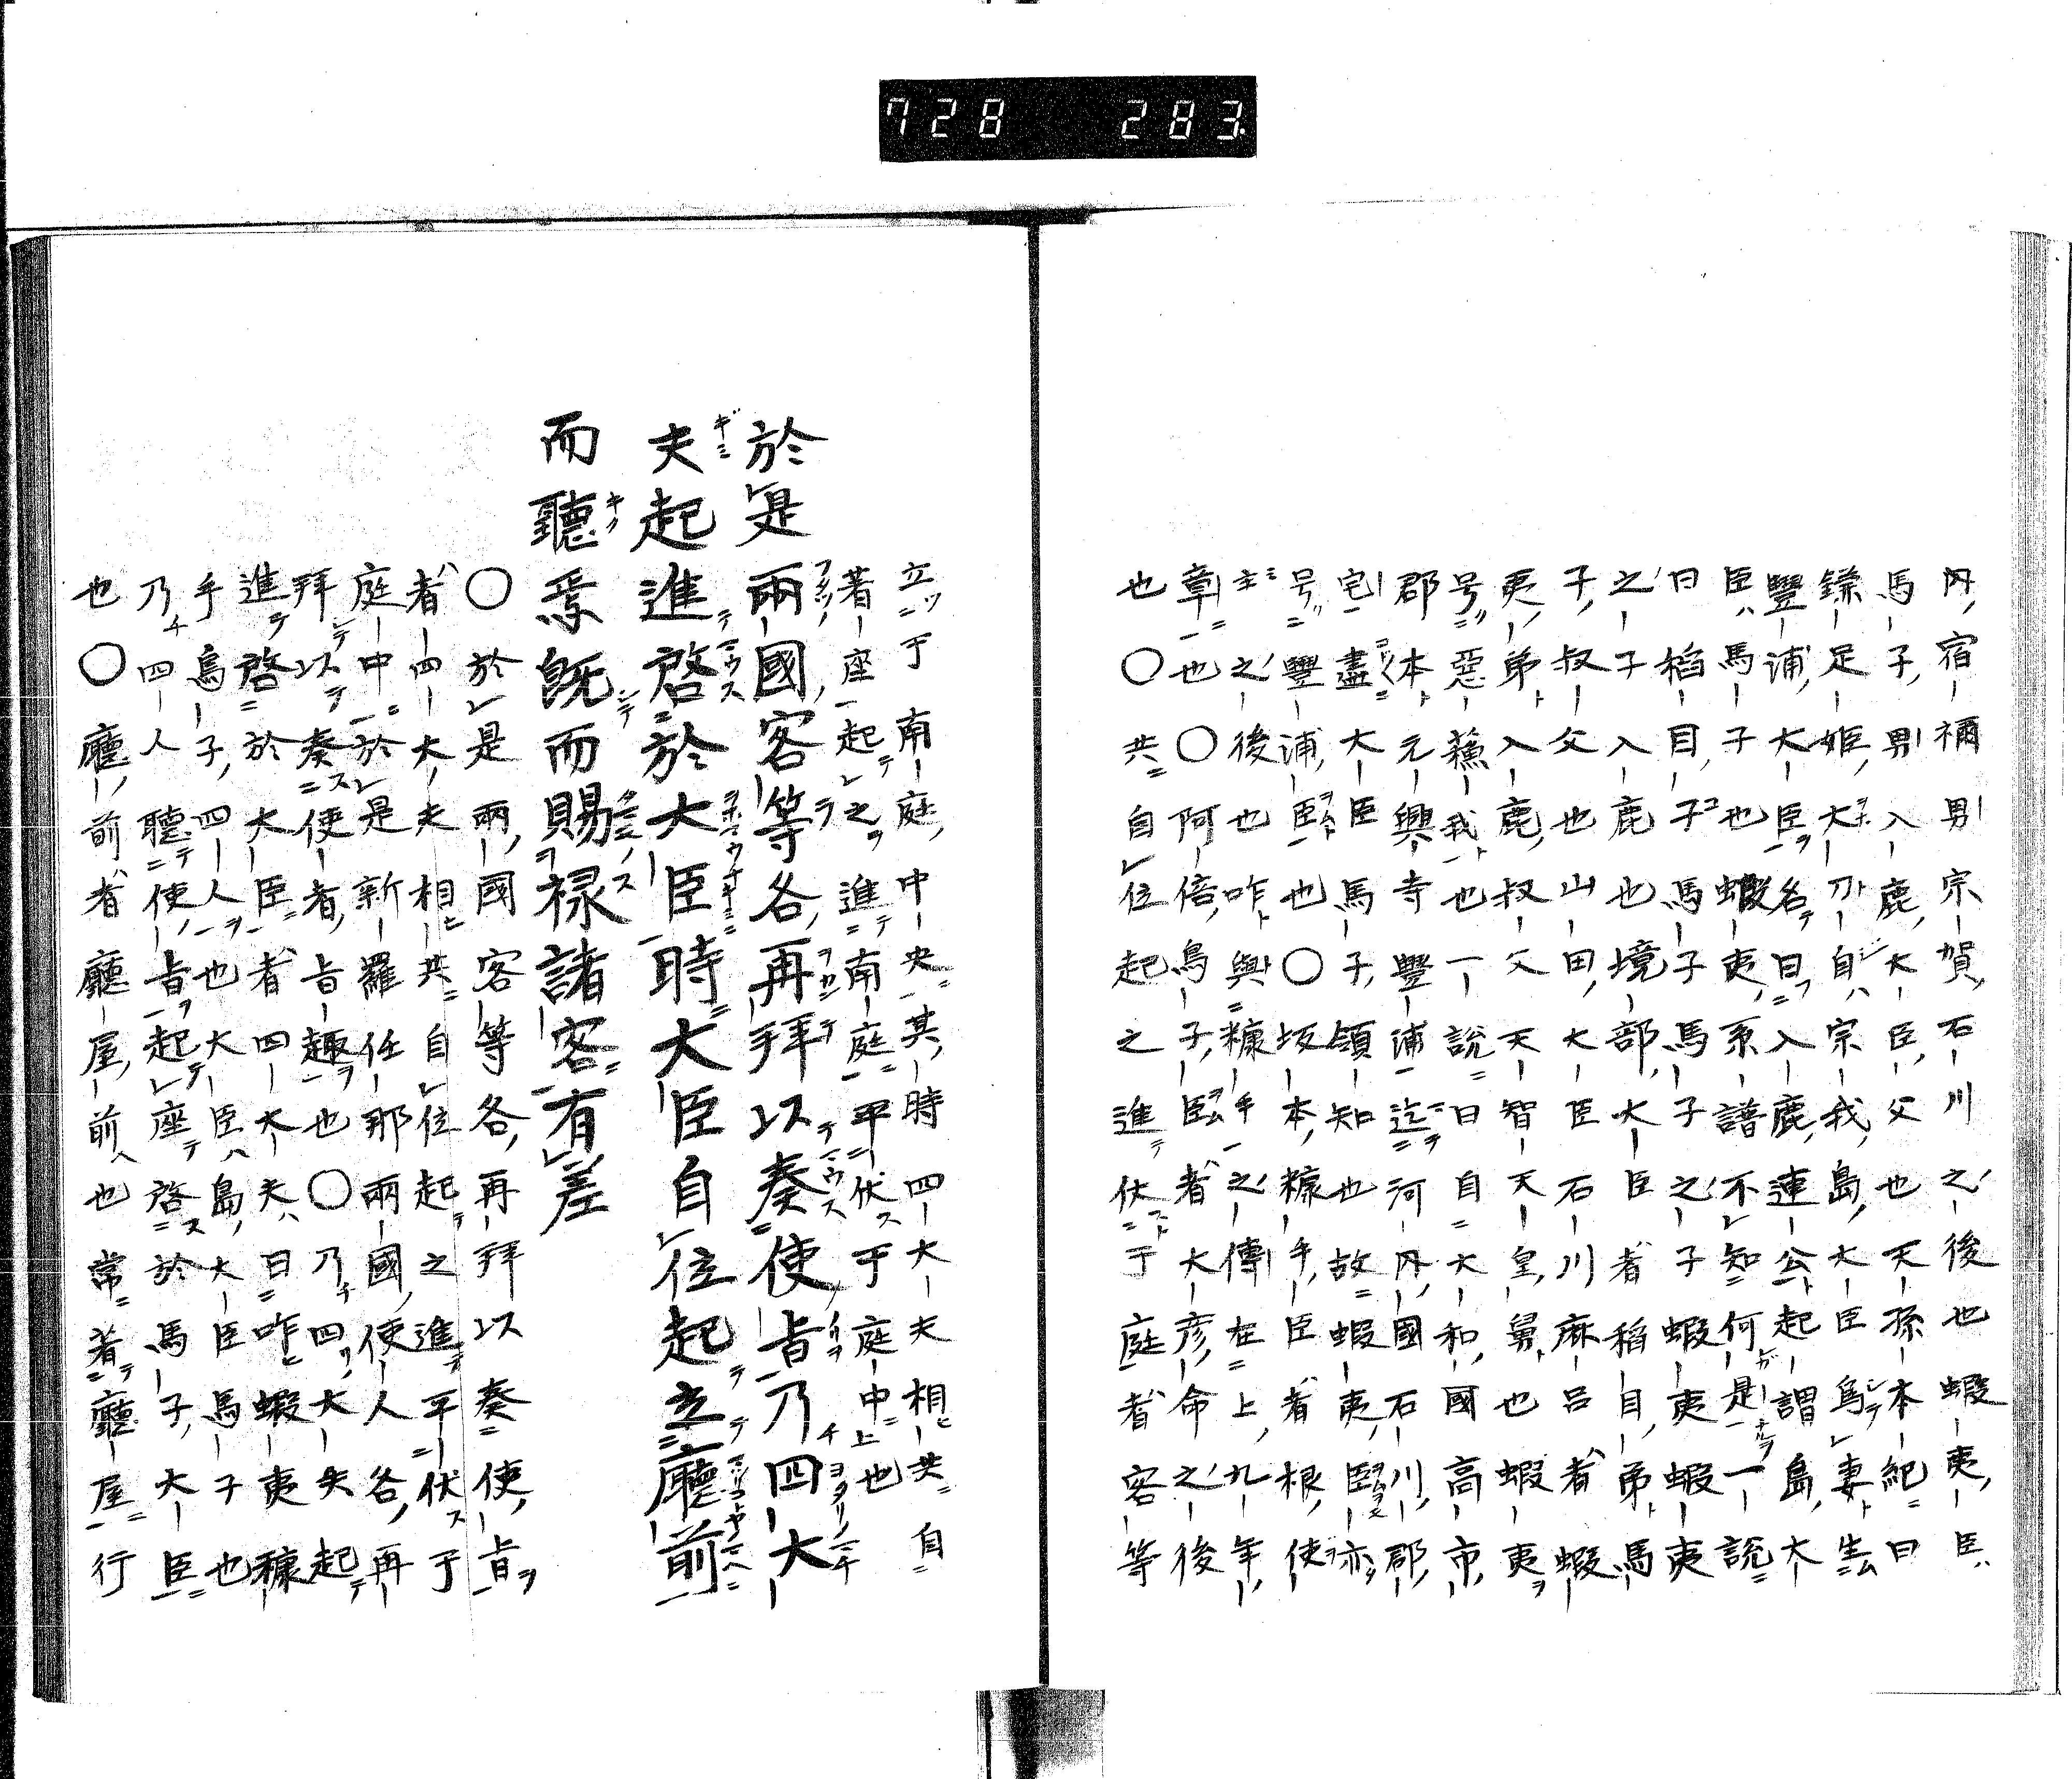 728 283
内宿禰男宗賀石川之後也蝦夷臣
馬子男入鹿大臣父也天孫本紀曰
鎌足姫大刀自宗我島大臣為妻生
豐浦大臣名曰入鹿連公起謂島大
臣馬子也蝦夷系譜不知何是一説
曰稻目子馬子馬子之子蝦夷蝦夷
之子入鹿也境部大臣者稻目弟馬
子叔父也山田大臣石川麻呂者蝦
夷弟入鹿叔父天智天皇舅也蝦夷
号惡蘓我也一説曰自大和國高市
郡本元興寺豐浦迄河内國石川郡
宅盡大臣馬子領知也故蝦夷臣亦
号豐浦臣也〇坂本糠手臣者根使
主之後也咋與糠手之傳在上九年
章也〇阿倍鳥子臣者大彦命之後
也〇共自位起之進伏于庭者客等
立于南庭中央其時四大夫相共自
著座起之進南庭平伏于庭中上也
於是兩國客等各再拜以奏使旨乃四大
夫起進啓於大臣時大臣自位起立廳前
而聽焉既而賜禄諸客有差
〇於是兩國客等各再拜以奏使旨
者四大夫相共自位起之進平伏于
庭中於是新羅任那兩國使人各再
拜以奏使者旨趣也〇乃四大夫起
進啓於大臣者四大夫曰咋蝦夷糠
手鳥子四人也大臣島大臣馬子也
乃四人聽使旨起座啓於馬子大臣
也〇廳前者廳屋前也常著廳屋行